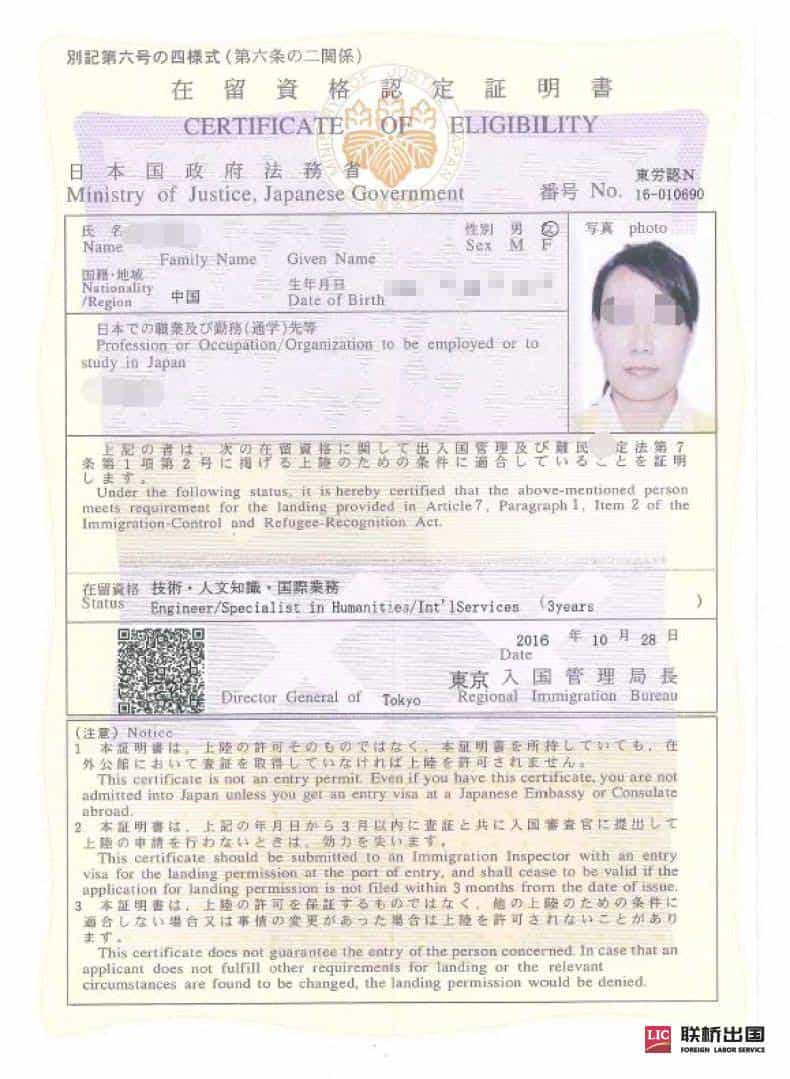 別記第六号の四様式(第六条の二関係)
在留資格認定証明書
CERTIFICATE OF ELIGIBILITY
日本国政府法務省
Ministry of Justice, Japanese Government
東労認N
番号 No. 16-010690
氏名
Name
Family Name Given Name
性別 男 女
Sex M F
写真 photo
国籍・地域
Nationality
/Region 中国
生年月日
Date of Birth
日本での職業及び勤務(通学)先等
Profession or Occupation/Organization to be employed or to
study in Japan
上記の者は、次の在留資格に関して出入国管理及び難民 定法第7
条第1項第2号に掲げる上陸のための条件に適合していることを証明
します。
Under the following status, it is hereby certified that the above-mentioned person
meets requirement for the landing provided in Article 7, Paragraph 1, Item 2 of the
Immigration-Control and Refugee-Recognition Act.
在留資格 技術・人文知識・国際業務
Status Engineer/Specialist in Humanities/Int'lServices (3years )
2016 年 10 月 28 日
Date
東京 入国管理局長
Director General of Tokyo Regional Immigration Bureau
(注意) Notice
1 本証明書は、上陸の許可そのものではなく、本証明書を所持していても、在
外公館において査証を取得していなければ上陸を許可されません。
This certificate is not an entry permit. Even if you have this certificate, you are not
admitted into Japan unless you get an entry visa at a Japanese Embassy or Consulate
abroad.
2 本証明書は、上記の年月日から3月以内に査証と共に入国審査官に提出して
上陸の申請を行わないときは、効力を失います。
This certificate should be submitted to an Immigration Inspector with an entry
visa for the landing permission at the port of entry, and shall cease to be valid if the
application for landing permission is not filed within 3 months from the date of issue.
3 本証明書は、上陸の許可を保証するものではなく、他の上陸のための条件に
適合しない場合又は事情の変更があった場合は上陸を許可されないことがあり
ます。
This certificate does not guarantee the entry of the person concerned. In case that an
applicant does not fulfill other requirements for landing or the relevant
circumstances are found to be changed, the landing permission would be denied.
LIC 联桥出国
FOREIGN LABOR SERVICE